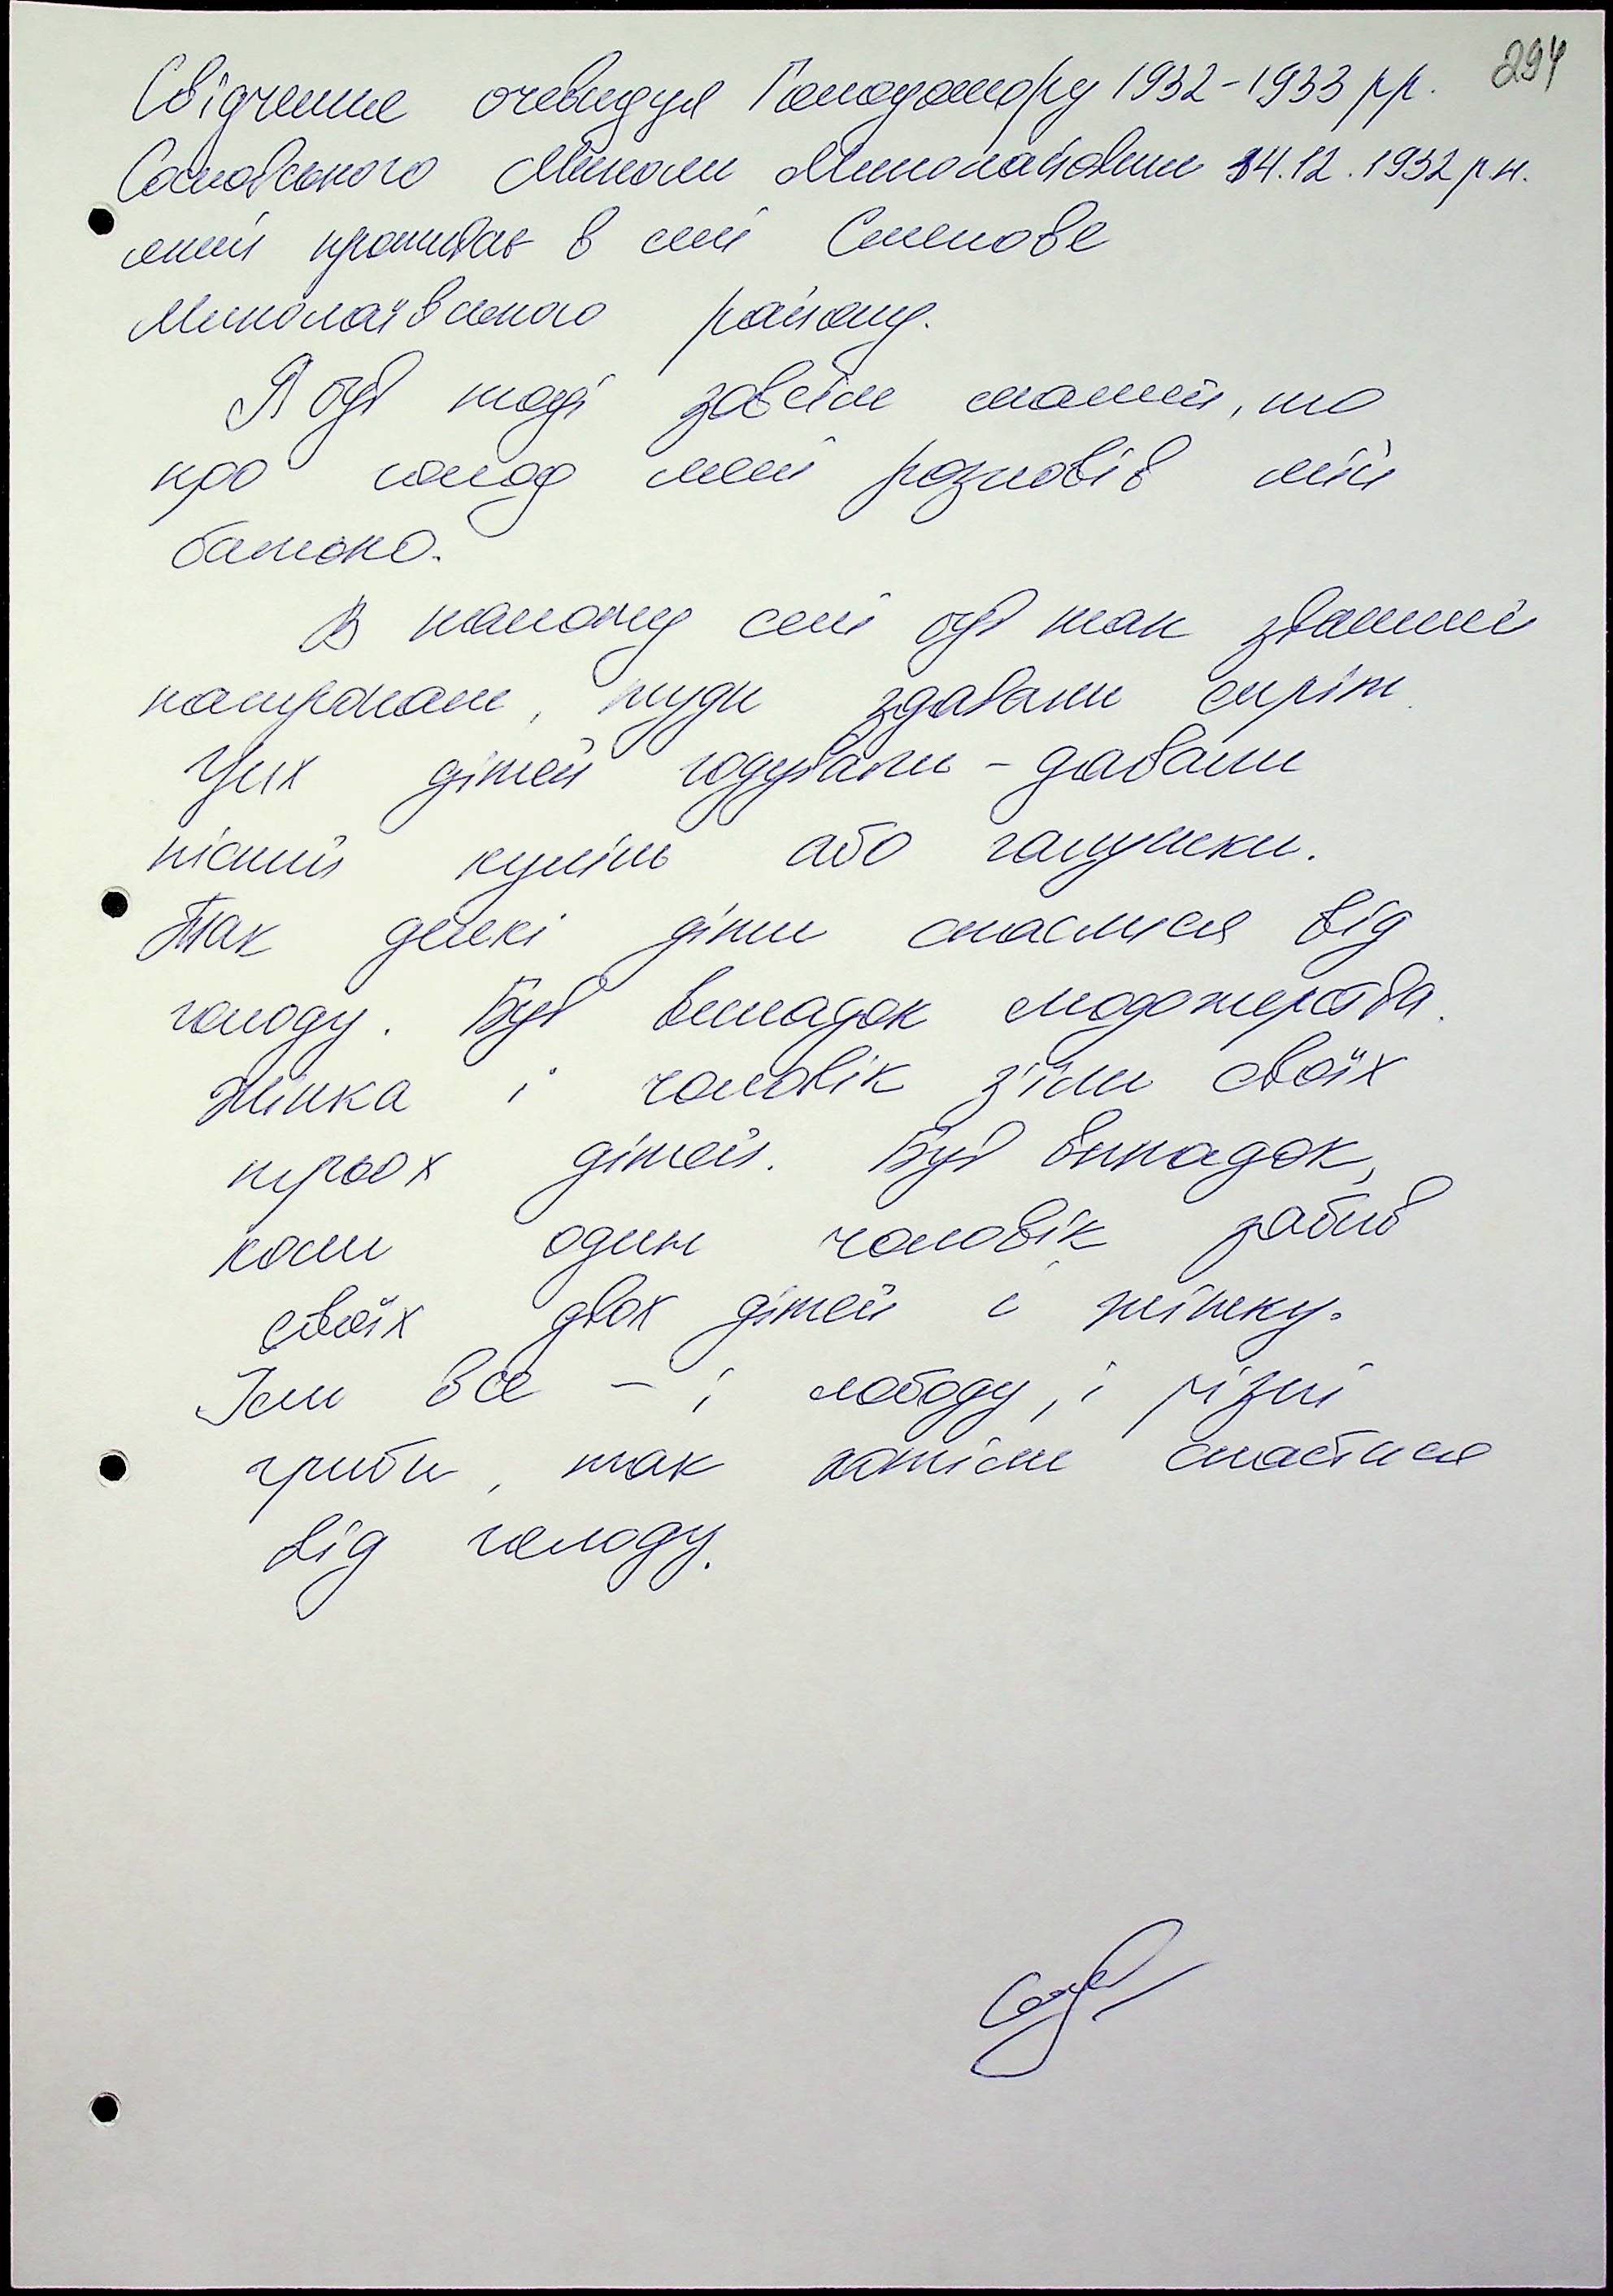 294
Свідчення очевидця Голодомору 1932-1933 р.р.
Миколи Миколайовича 14.12.1932 р.н.
який проживає в селі Степове
Миколаївського району.
Я був тоді зовсім малий, то
про голод мені розповів мій
батько.
В нашому селі був так званий
патронат, туди здавали сиріт.
Цих дітей годували - давали
пісний куліш або галушки.
Так деякі діти спаслися від
голоду. Був випадок людожерства.
Жінка і чоловік з'їли своїх
трьох дітей. Був випадок,
коли один чоловік забив
своїх двох дітей і жінку.
Їли все - і лободу, і різні
гриби, так хотіли спастися
від голоду.